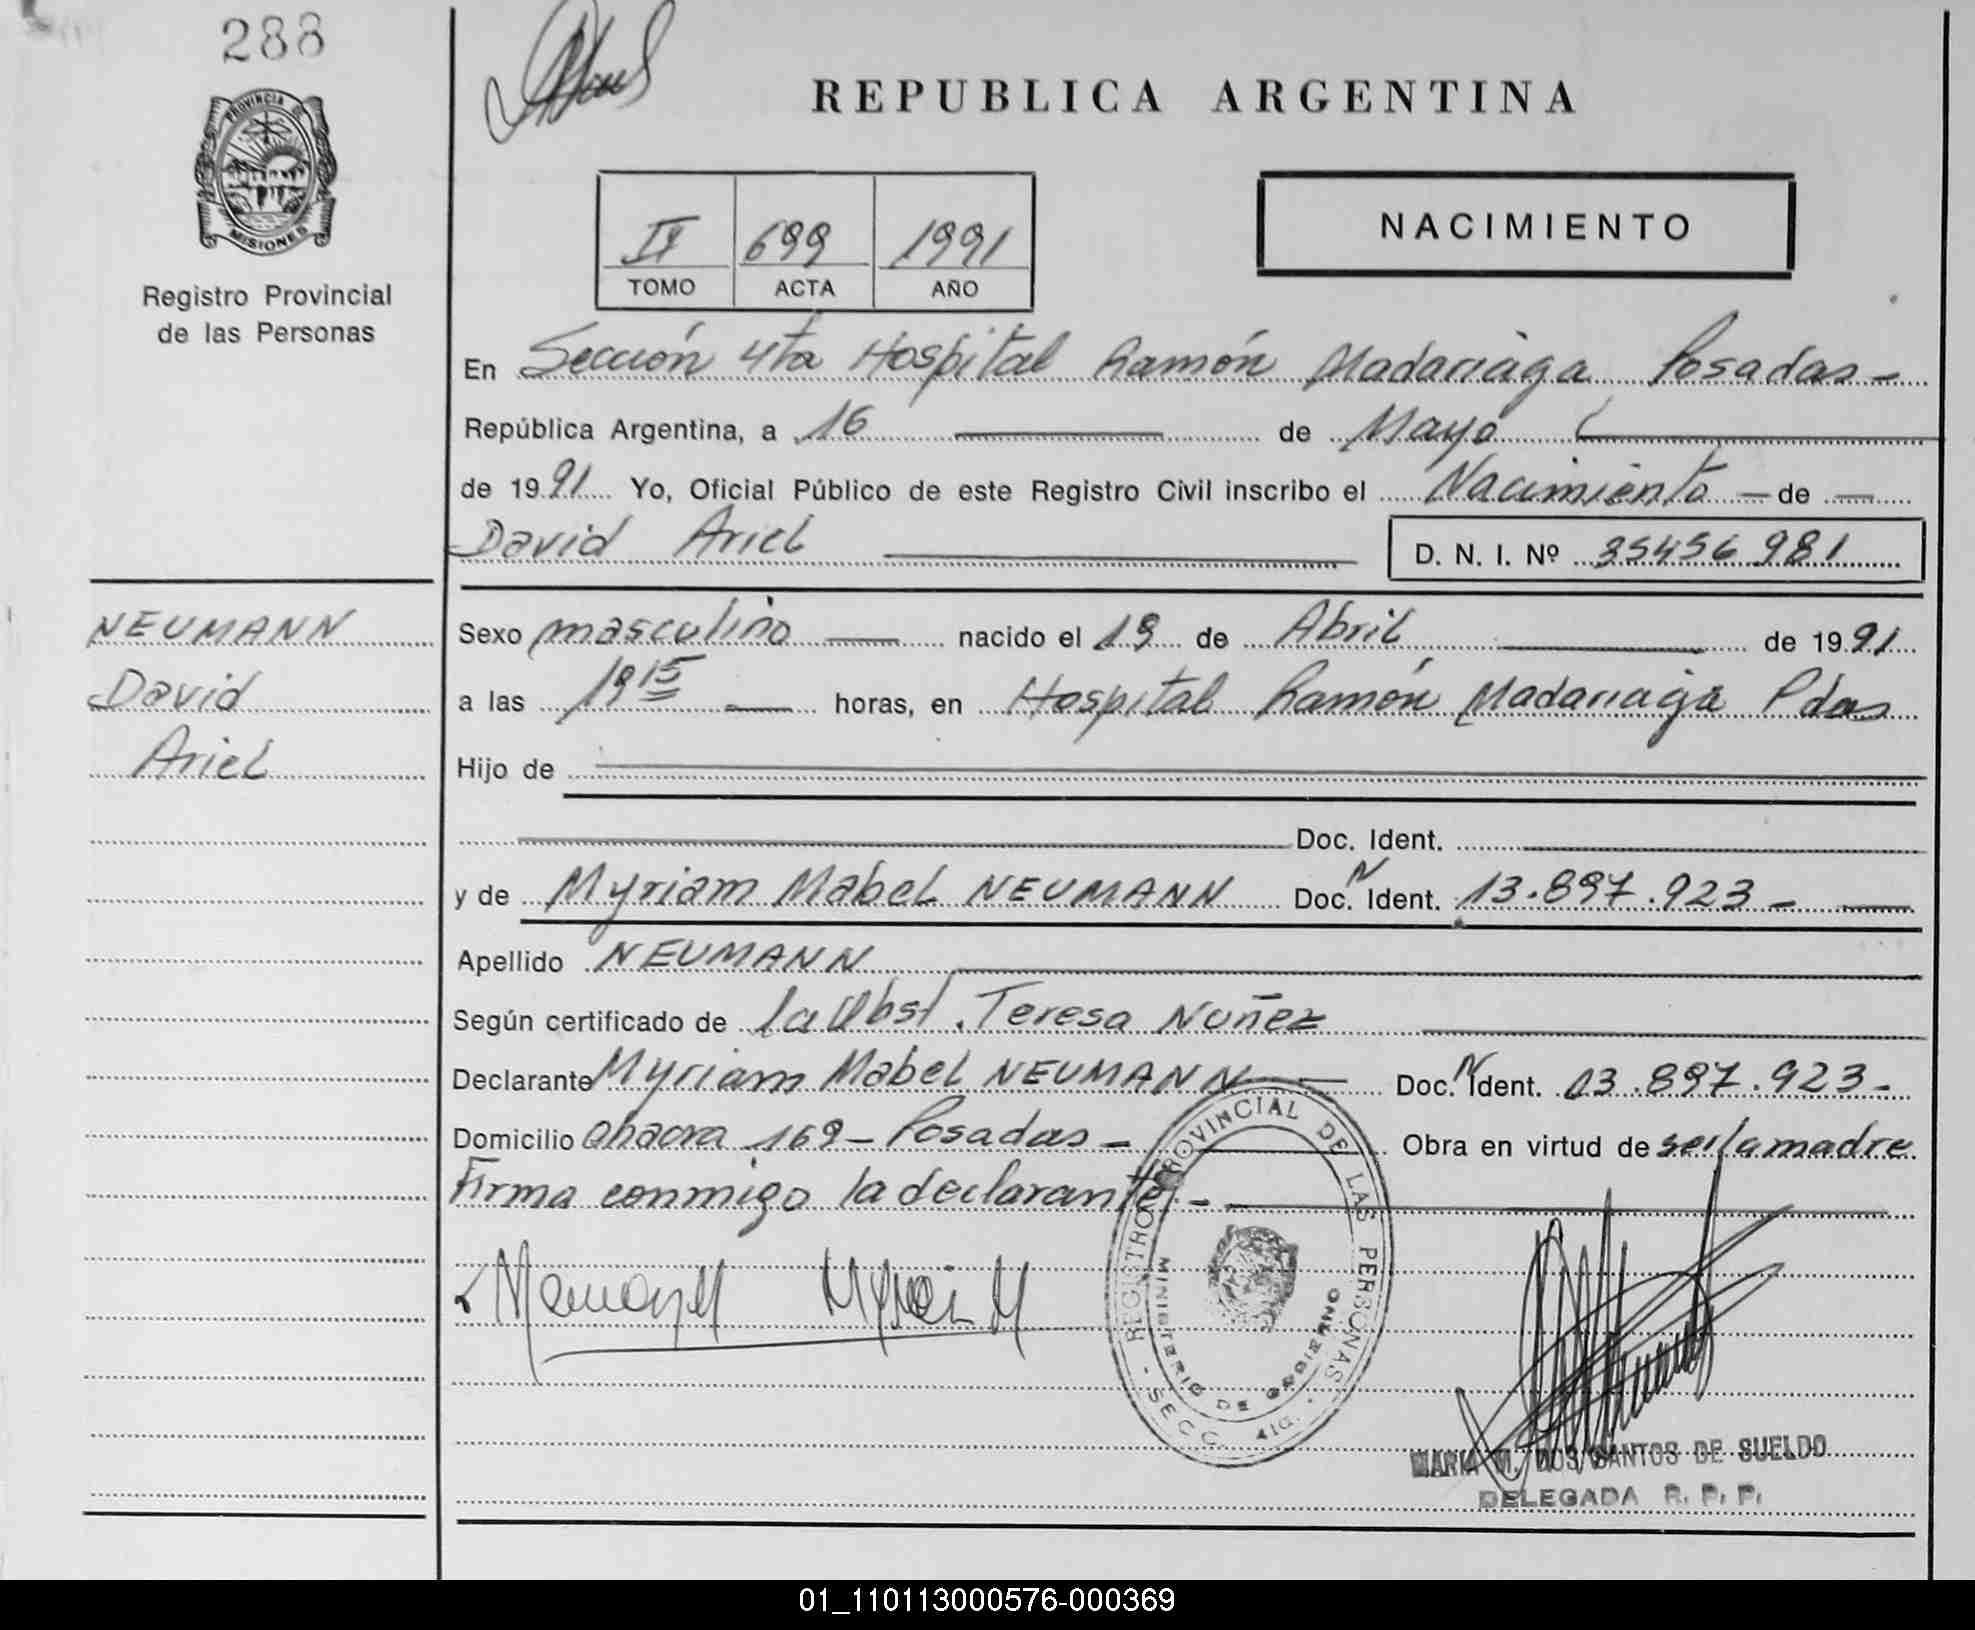 288
PROVINCIA DE
MISIONES
Registro Provincial
de las Personas
REPUBLICA ARGENTINA
NACIMIENTO
II 699 1991
TOMO ACTA AÑO
En Sección 4ta Hospital Ramón Madariaga Posadas -
República Argentina, a 16 de Mayo
de 1991 Yo, Oficial Público de este Registro Civil inscribo el Nacimiento - de -
David Ariel D. N. I. Nº 35456981
NEUMANN
David
Ariel
Sexo masculino nacido el 19 de Abril de 1991
a las 19 15 horas, en Hospital Ramón Madariaga Pdas
Hijo de
Doc. Ident.
y de Myriam Mabel NEUMANN Doc. N Ident. 13.897.923 -
Apellido NEUMANN
Según certificado de la Obst. Teresa Nuñez
Declarante Myriam Mabel NEUMANN Doc. N Ident. 13.897.923 -
Domicilio Chacra 169 - Posadas - Obra en virtud de ser la madre
Firma conmigo la declarante. -
REGISTRO PROVINCIAL DE LAS PERSONAS
MINISTERIO DE GOBIERNO
- SECC. 4ta. -
MARIA M. DOS SANTOS DE SUELDO
DELEGADA R. P. P.
01_110113000576-000369